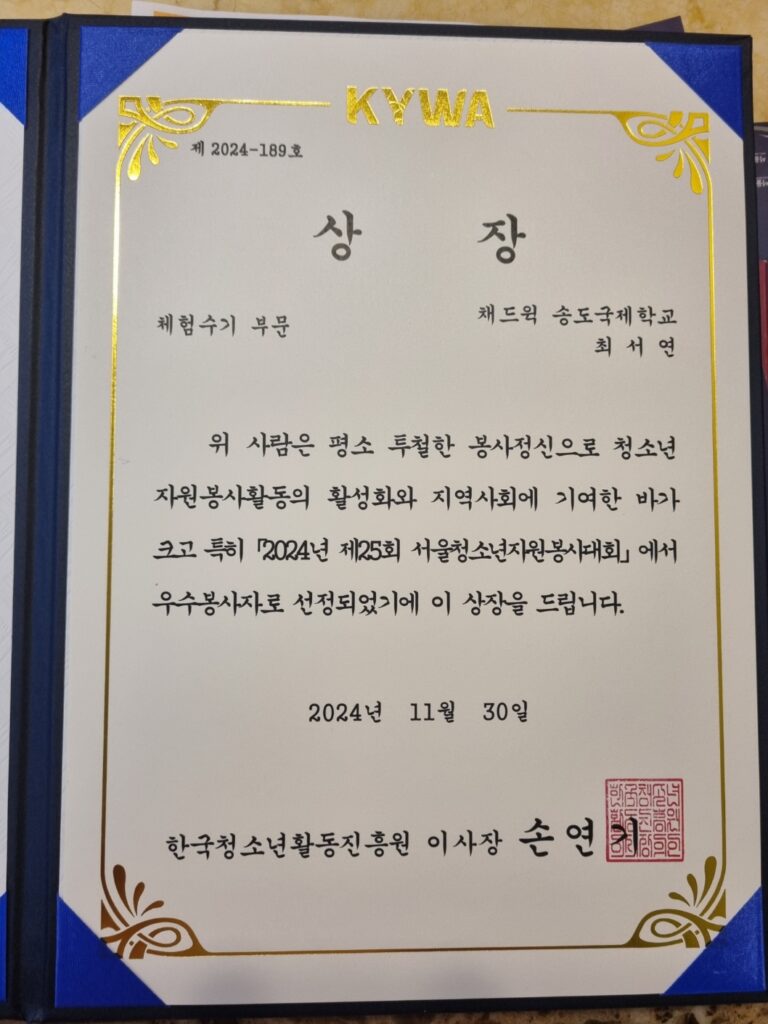 KYWA
제 2024-189호
상 장
체험수기 부문
채드윅 송도국제학교
최 서 연
위 사람은 평소 투철한 봉사정신으로 청소년
자원봉사활동의 활성화와 지역사회에 기여한 바가
크고 특히 「2024년 제25회 서울청소년자원봉사대회」에서
우수봉사자로 선정되었기에 이 상장을 드립니다.
2024년 11월 30일
한국청소년활동진흥원 이사장 손 연 기